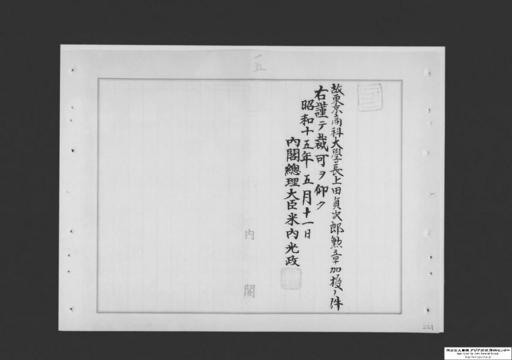 故東京商科大學長上田貞次郎勲章加授ノ件
右謹テ裁可ヲ仰ク
昭和十五年五月十一日
内閣總理大臣米内光政
内閣